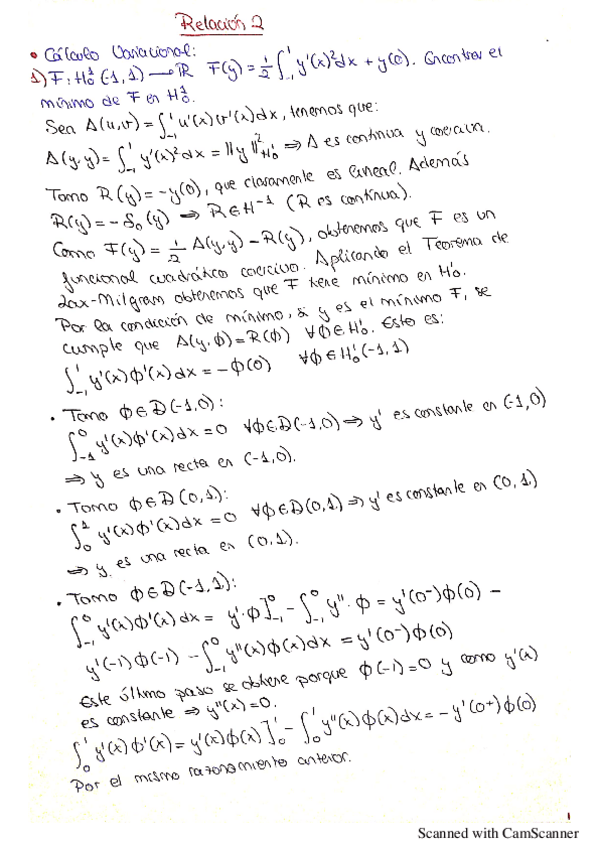 Relación 2
• Cálculo Variacional:
1) F: H₀¹(-1,1) → ℝ F(y) = 1/2 ∫₋₁¹ y'(x)² dx + y(0). Encontrar el
mínimo de F en H₀¹.
Sea A(u,v) = ∫₋₁¹ u'(x) v'(x) dx, tenemos que:
A(y,y) = ∫₋₁¹ y'(x)² dx = ||y||²_H₀¹ ⇒ A es continua y coerciva.
Tomo R(y) = -y(0), que claramente es lineal. Además
R(y) = -δ₀(y) ⇒ R ∈ H⁻¹ (R es continua).
Como F(y) = 1/2 A(y,y) - R(y), obtenemos que F es un
funcional cuadrático coercivo. Aplicando el Teorema de
Lax-Milgram obtenemos que F tiene mínimo en H₀¹.
Por la condición de mínimo, si y es el mínimo F, se
cumple que A(y,ϕ) = R(ϕ) ∀ϕ∈H₀¹. Esto es:
∫₋₁¹ y'(x) ϕ'(x) dx = -ϕ(0) ∀ϕ∈H₀¹(-1,1)
• Tomo ϕ∈D(-1,0):
∫₋₁⁰ y'(x) ϕ'(x) dx = 0 ∀ϕ∈D(-1,0) ⇒ y' es constante en (-1,0)
⇒ y es una recta en (-1,0).
• Tomo ϕ∈D(0,1):
∫₀¹ y'(x) ϕ'(x) dx = 0 ∀ϕ∈D(0,1) ⇒ y' es constante en (0,1)
⇒ y es una recta en (0,1).
• Tomo ϕ∈D(-1,1):
∫₋₁⁰ y'(x) ϕ'(x) dx = y'·ϕ]₋₁⁰ - ∫₋₁⁰ y''·ϕ = y'(0⁻)ϕ(0) -
y'(-1)ϕ(-1) - ∫₋₁⁰ y''(x)ϕ(x)dx = y'(0⁻)ϕ(0)
Este último paso se obtiene porque ϕ(-1)=0 y como y'(x)
es constante ⇒ y''(x)=0.
∫₀¹ y'(x) ϕ'(x) = y'(x)ϕ(x)]₀¹ - ∫₀¹ y''(x)ϕ(x)dx = -y'(0⁺)ϕ(0)
Por el mismo razonamiento anterior.
1
Scanned with CamScanner